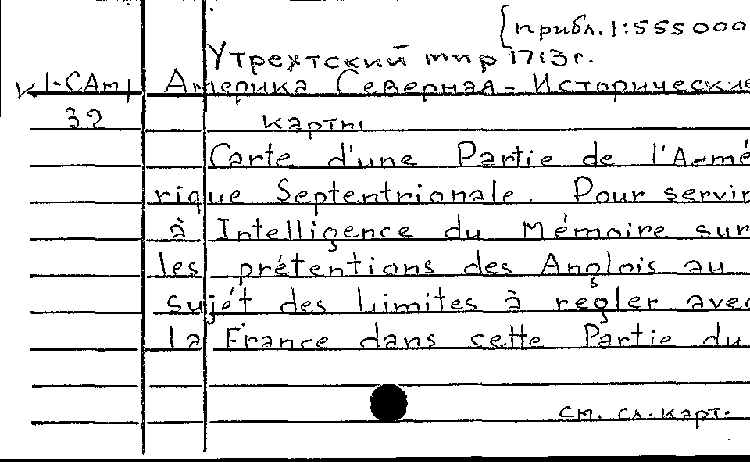 {прибл. 1:555 000
Утрехтский мир 1713г.
К1-САm Америка Северная - Исторические
32 карты
Carte d'une Partie de l'Amé
rique Septentrionale. Pour servir
à Intelligence du Mémoire sur
les prétentions des Anglois au
sujét des Limites à regler avec
la France dans cette Partie du
см. сл. карт.